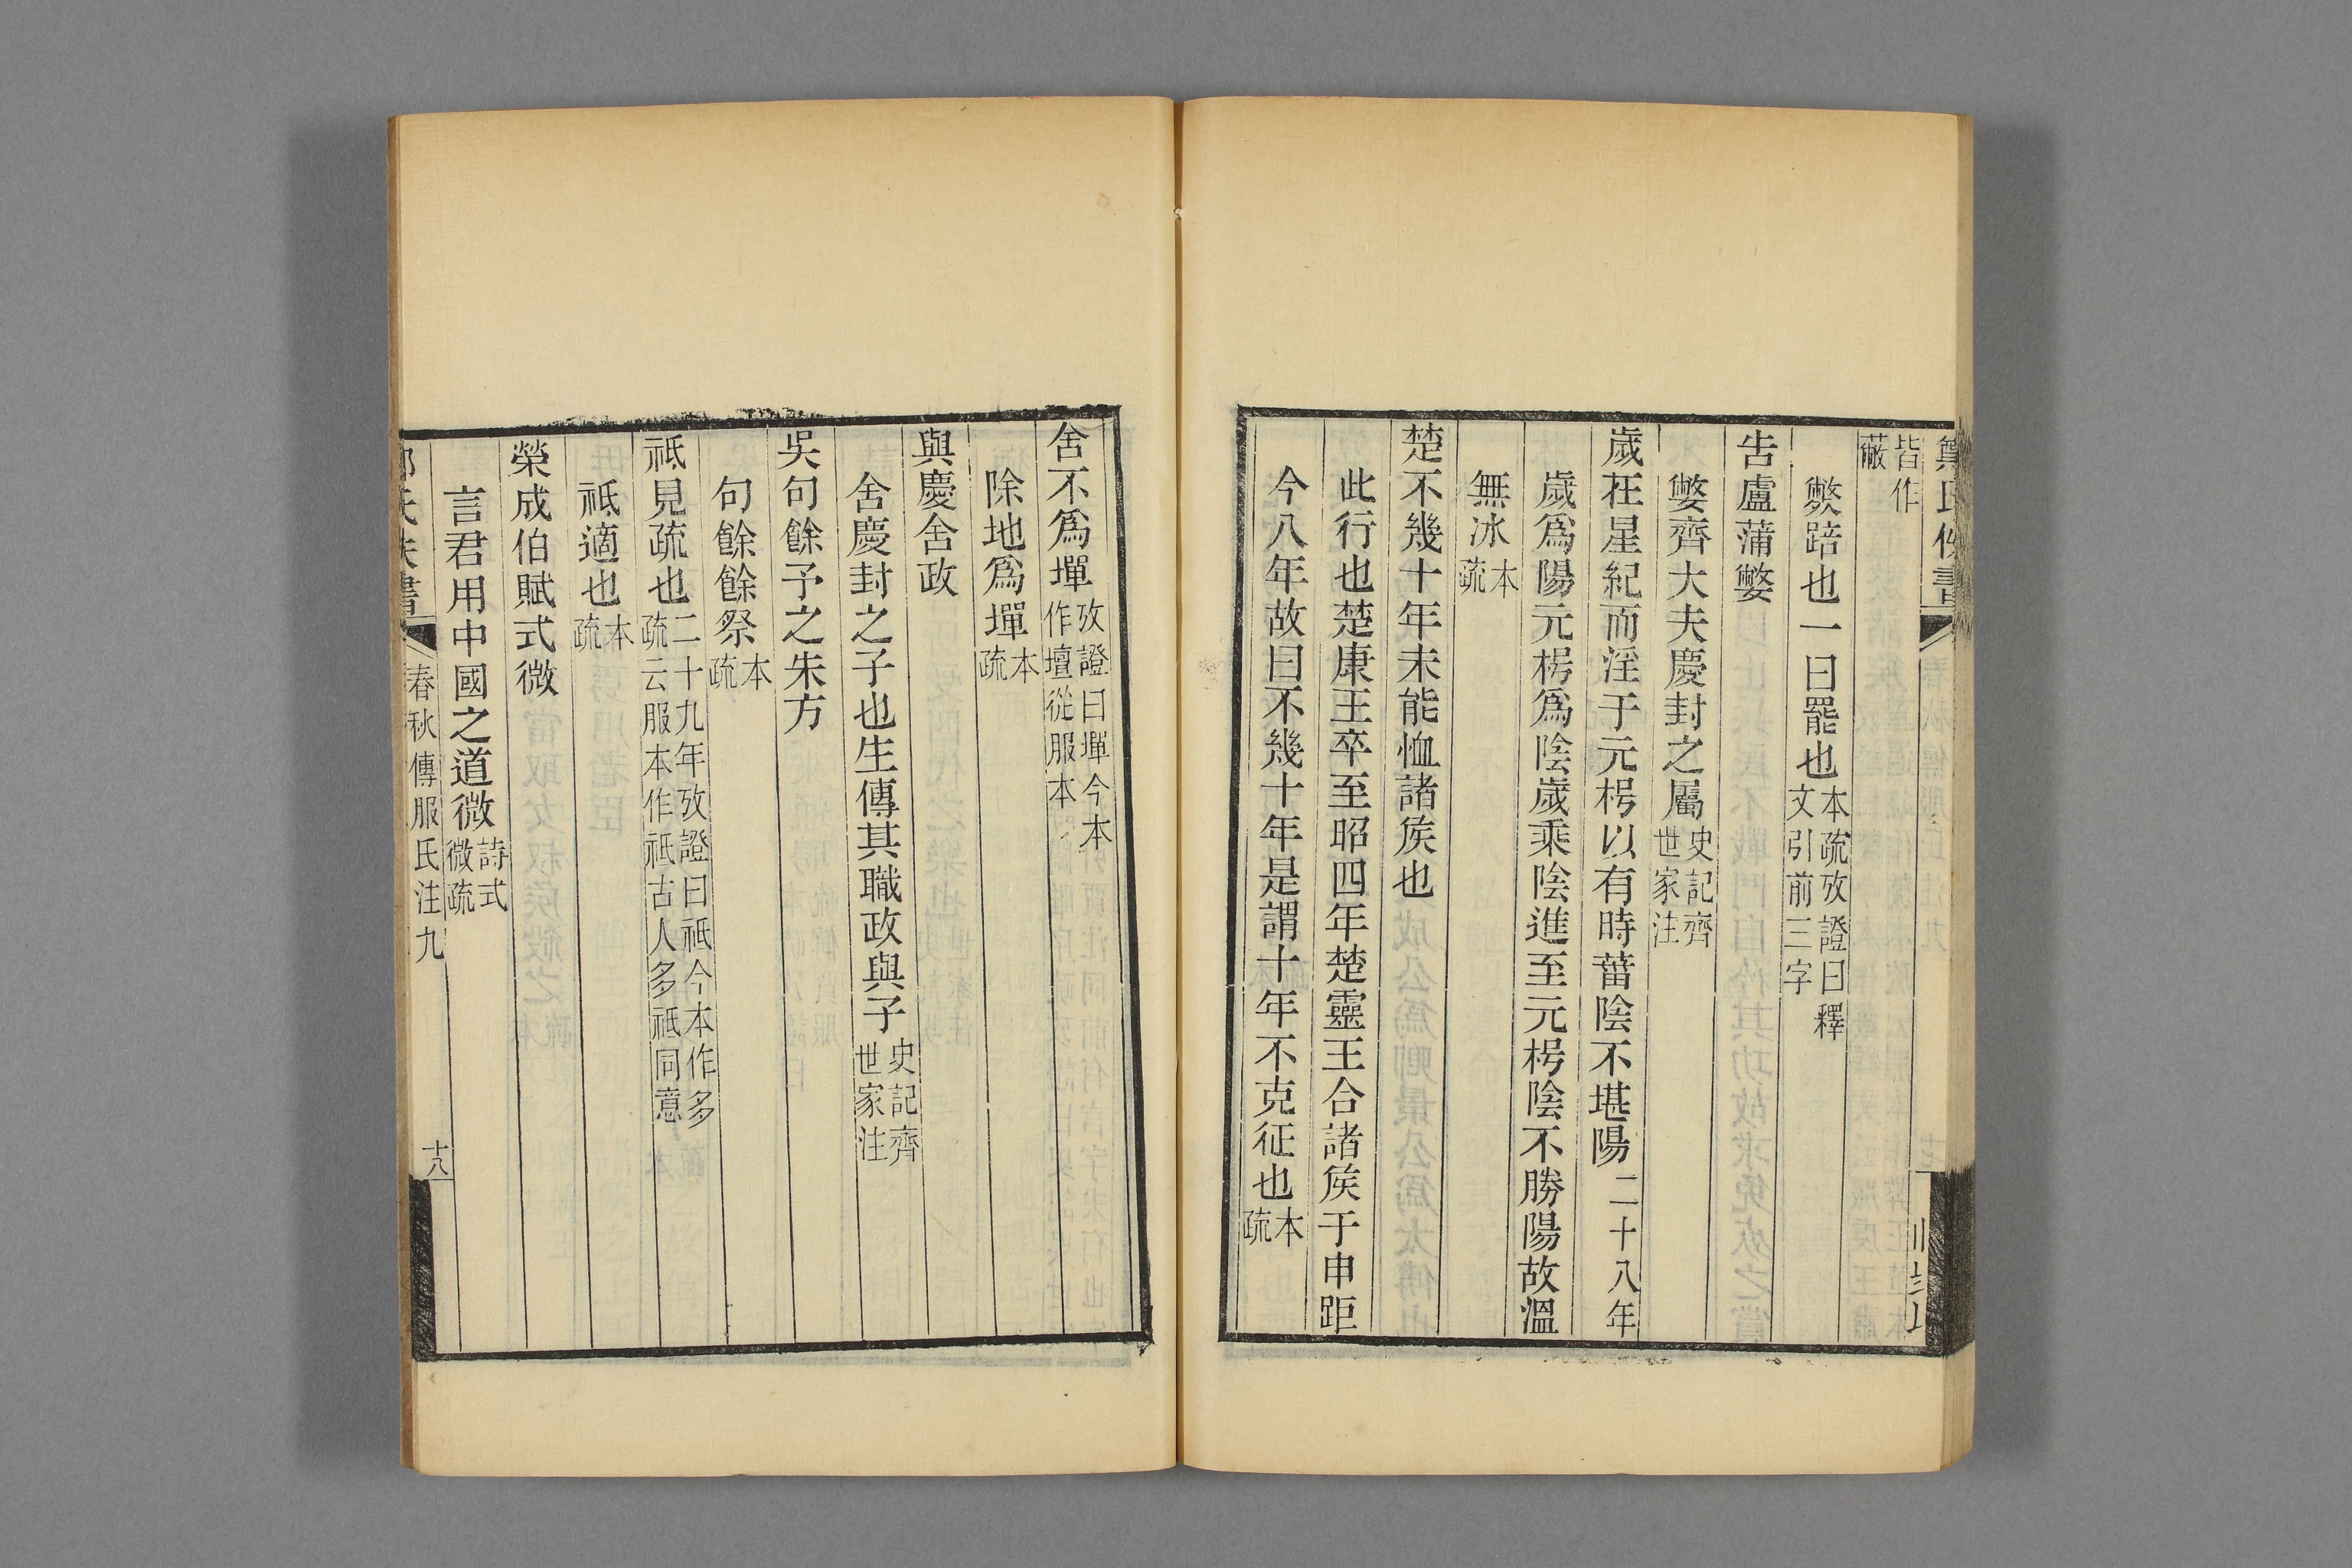 皆作
蔽
獘踣也一曰罷也本疏攷證曰釋
文引前三字
告盧蒲嫳
嫳齊大夫慶封之屬史記齊
世家注
歲在星紀而淫于元枵以有時菑陰不堪陽二十八年
歲爲陽元枵爲陰歲乘陰進至元枵陰不勝陽故溫
無冰本
疏
楚不幾十年未能恤諸矦也
此行也楚康王卒至昭四年楚靈王合諸矦于申距
今八年故曰不幾十年是謂十年不克征也本
疏
舍不爲墠攷證曰墠今本
作壇從服本
除地爲墠本
疏
與慶舍政
舍慶封之子也生傳其職政與子史記齊
世家注
吳句餘予之朱方
句餘餘祭本
疏
祗見疏也二十九年攷證曰祗今本作多
疏云服本作祗古人多祗同意
祗適也本
疏
榮成伯賦式微
言君用中國之道微詩式
微疏
春秋傳服氏注九
十八